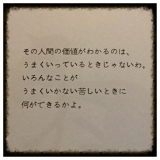 その人間の価値がわかるのは、
うまくいっているときじゃないわ。
いろんなことが
うまくいかない苦しいときに
何ができるかよ。